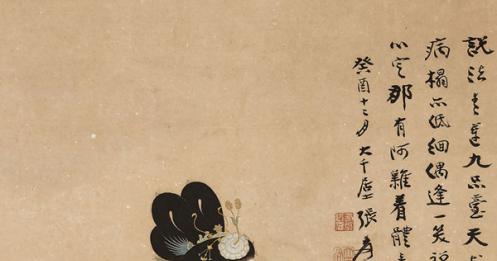 説法天達九品臺天
病榻不低細偶逢一笑
心定那有阿難看體
癸酉十二月大千居士張爰